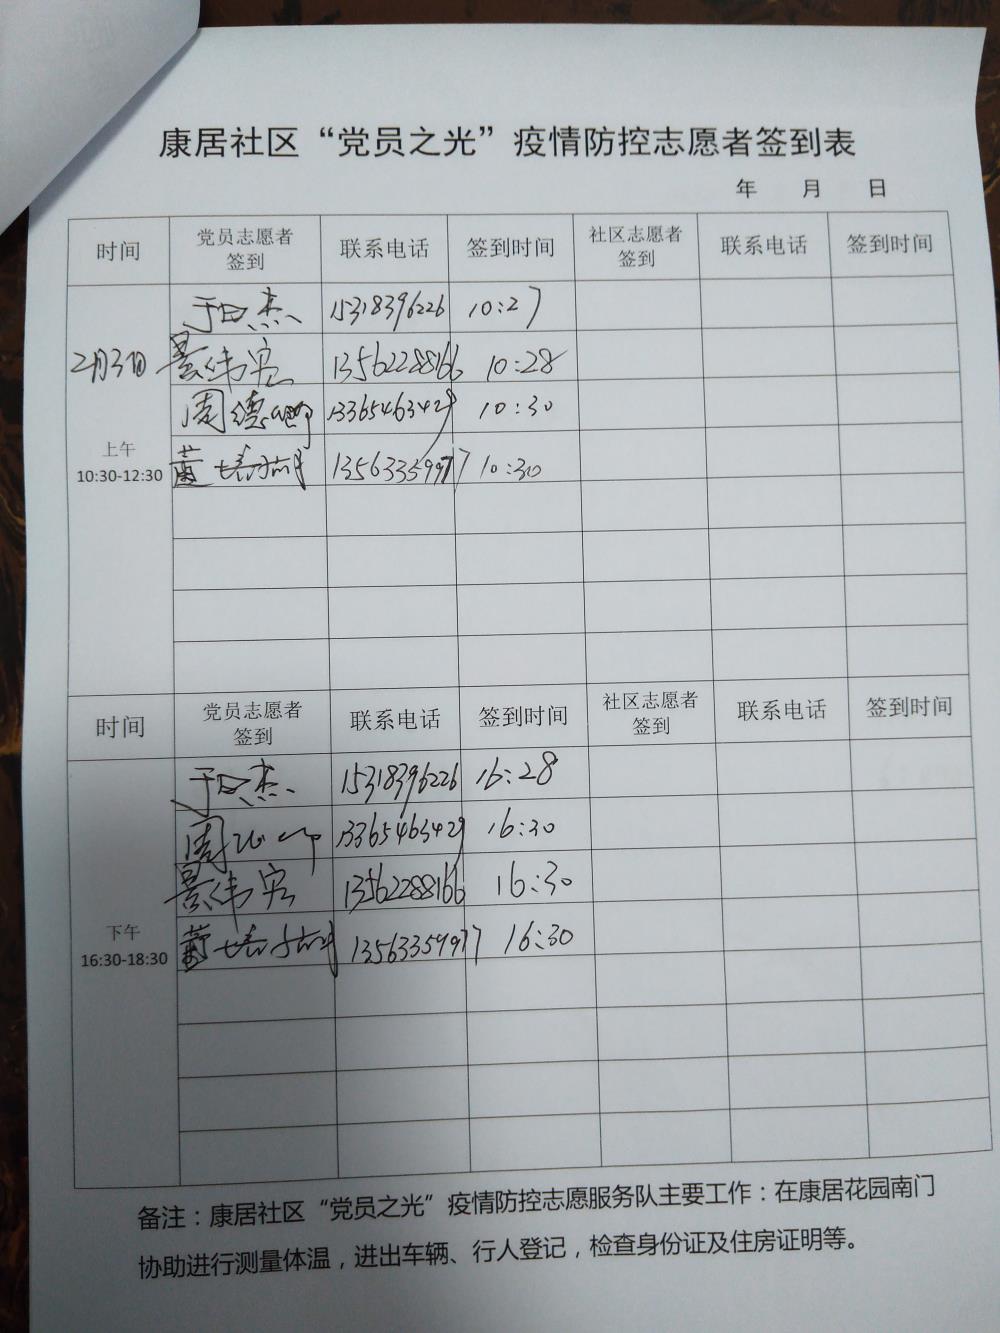 康居社区“党员之光”疫情防控志愿者签到表
年 月 日
时间 党员志愿者签到 联系电话 签到时间 社区志愿者签到 联系电话 签到时间
于日杰 15318396226 10:27
2月3日 景纬宾 13562288166 10:28
周德 13365463429 10:30
上午
10:30-12:30
董 13563359977 10:30
时间 党员志愿者签到 联系电话 签到时间 社区志愿者签到 联系电话 签到时间
于日杰 15318396226 16:28
周 13365463429 16:30
景纬宾 13562288166 16:30
下午
16:30-18:30
董 13563359977 16:30
备注：康居社区“党员之光”疫情防控志愿服务队主要工作：在康居花园南门
协助进行测量体温，进出车辆、行人登记，检查身份证及住房证明等。